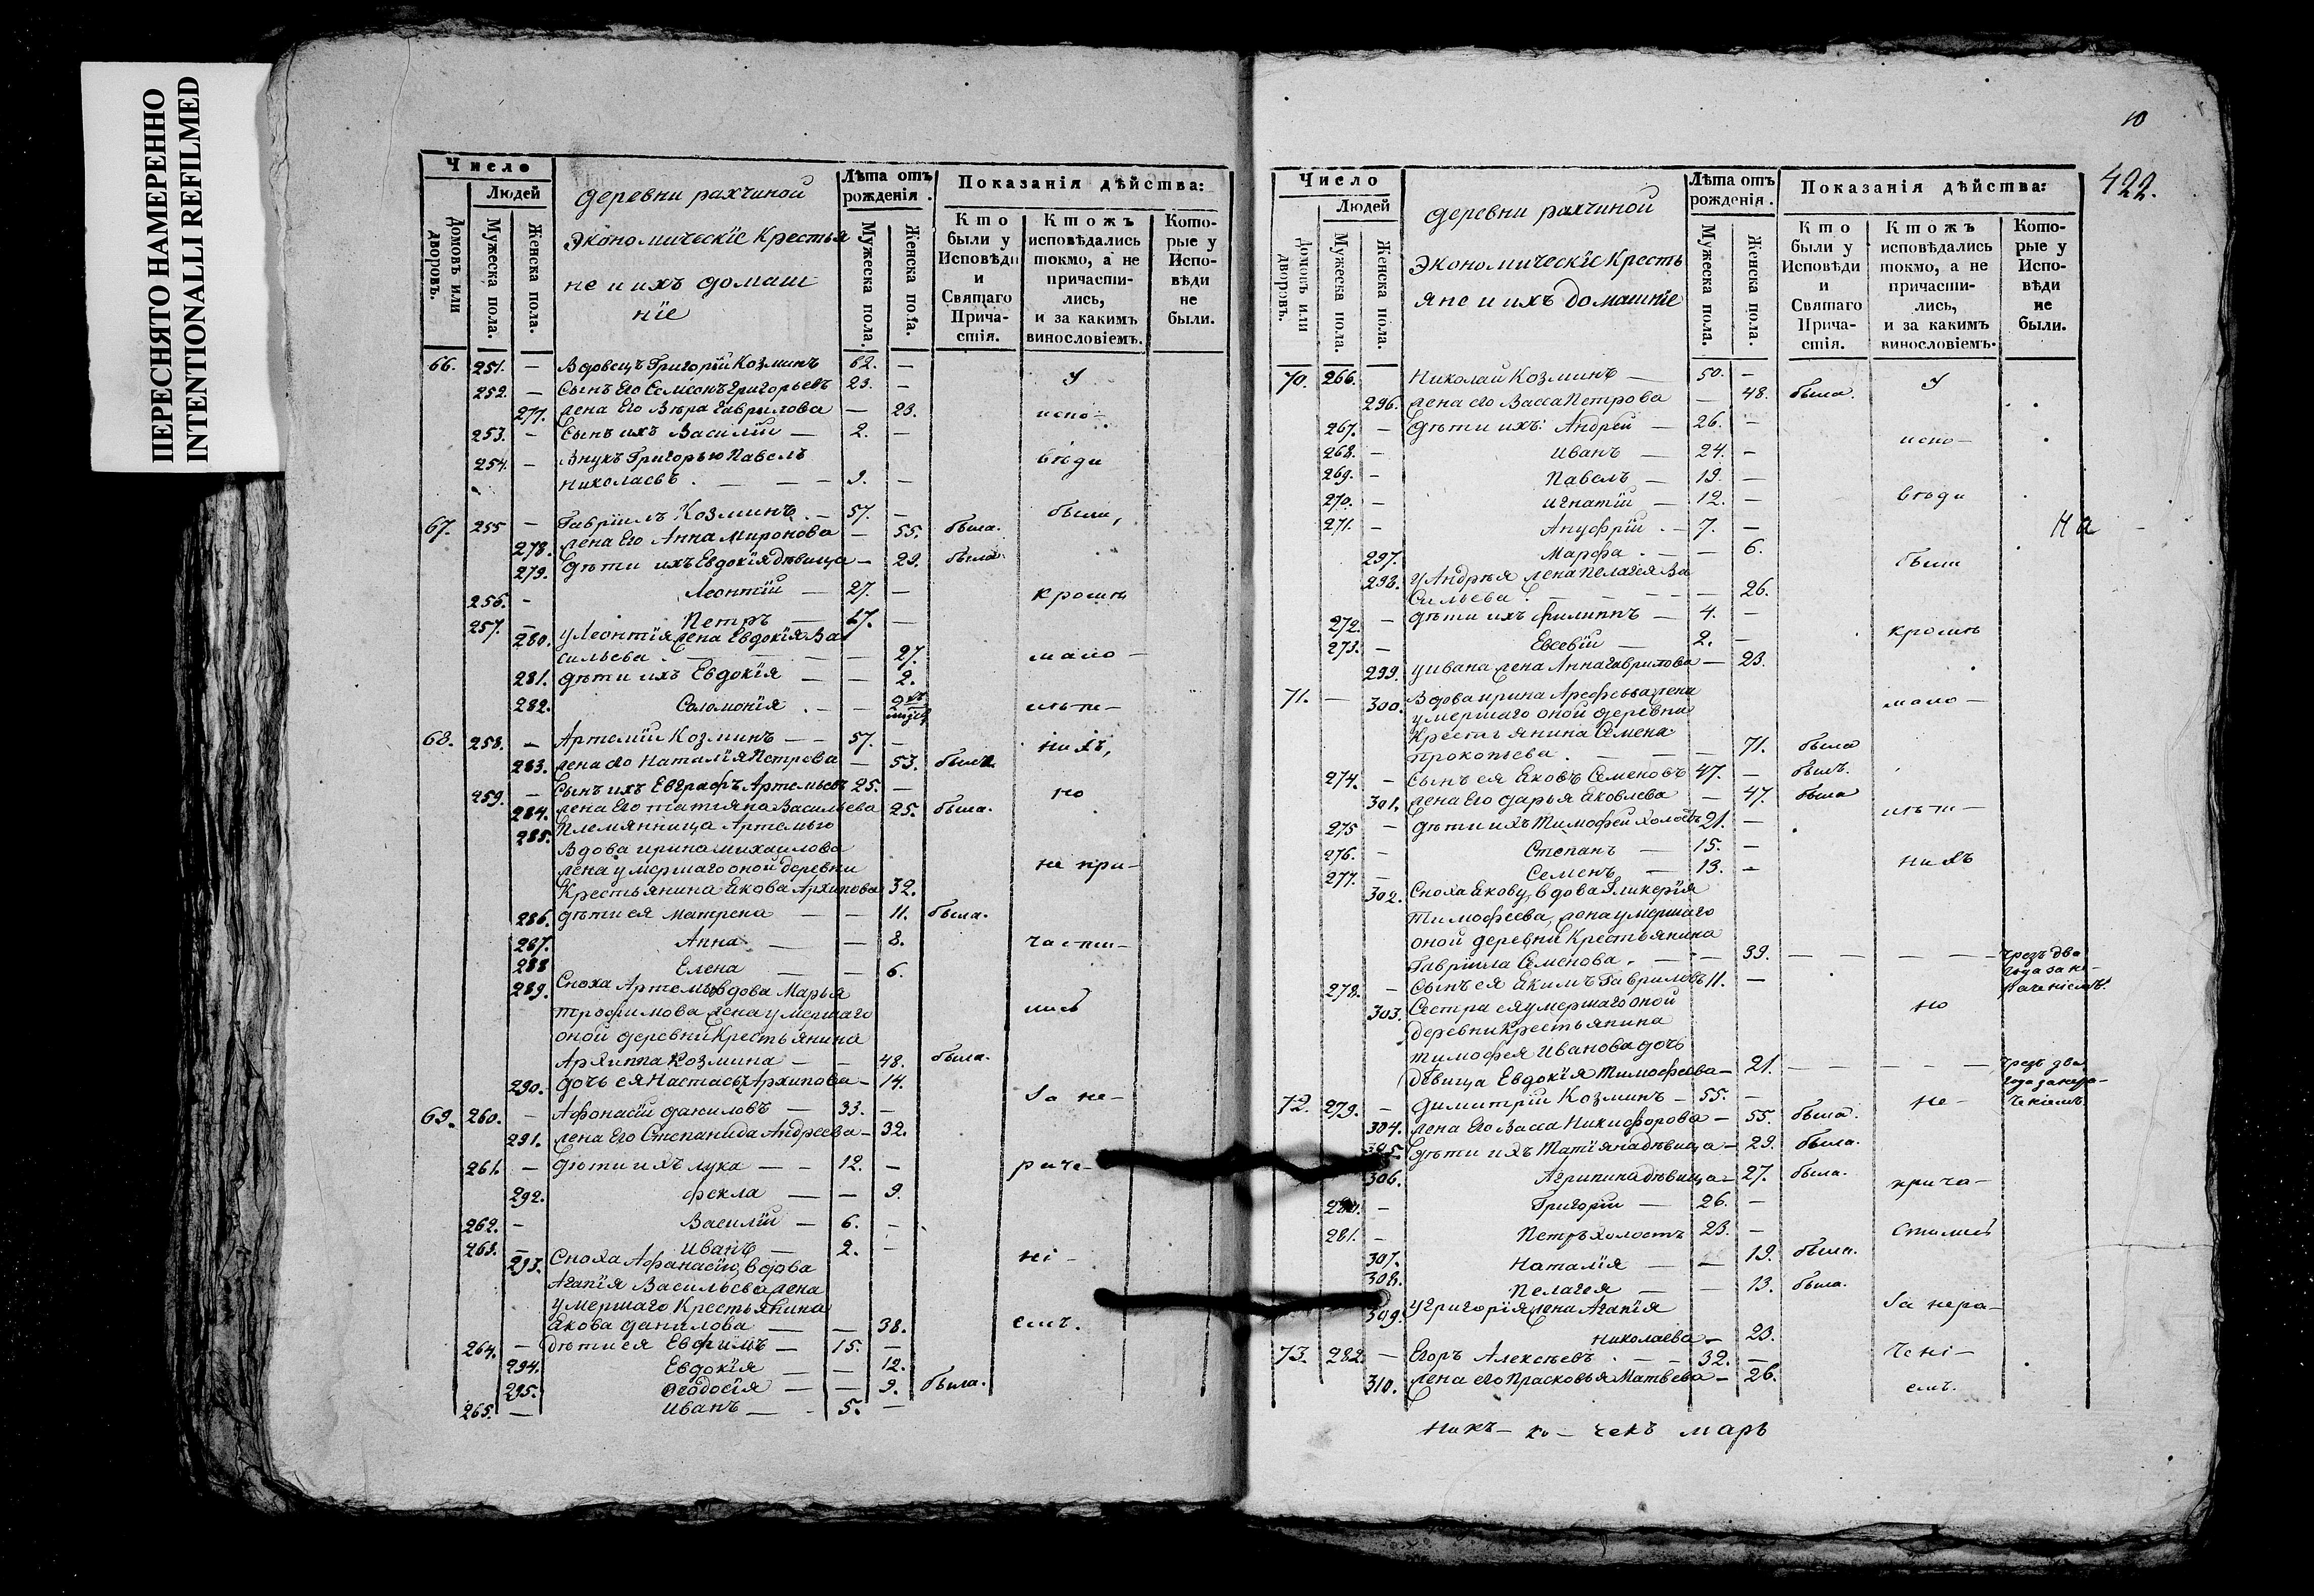 ПЕРЕСНЯТО НАМЕРЕННО
INTENTIONALLI REFILMED
Число
Людей
Домовъ или дворовъ.
Мужеска пола.
Женска пола.
деревни рахчиной
Экономическїе Крестья
не и ихъ домаш
нїе
Лѣта отъ рожденія.
Мужеска пола.
Женска пола.
Показанія дѣйства:
Кто были у Исповѣди и Святаго Причастія.
Ктожъ исповѣдались токмо, а не причастились, и за какимъ винословіемъ.
Которые у Исповѣди не были.
66. 251. — Вдовецъ Григорїй Козминъ 62. —
252. — Сынъ Его Семїонъ Григорьевъ 23. — У
277. жена Его Вѣра Гаврилова — 23. испо-
253. — Сынъ ихъ Василїй — 2. —
254. — Внукъ Григорью Павелъ вѣди
Николаевъ. — — 9. —
67. 255 — Гаврїилъ Козминъ. — 57. — были,
278. жена Его Анна Миронова — 55. была.
279. Дѣти ихъ Евдокїя дѣвица — 29. была.
256. — Леонтїй — 27. — кромѣ
257. — Петръ — 17. —
280. у Леонтїя жена Евдокїя Ва
сильева. — — 27. мало-
281. дѣти ихъ Евдокїя — — 2.
282. Соломонїя. — — 9 лѣтни-
68. 258. — Артемїй Козминъ — 57. — нихъ,
283. жена его Наталїя Петрова — 53. была
259. — Сынъ ихъ Евграфъ Артемьевъ 25. — но
284. жена Его Татїяна Васильева 25. была.
285. Племянница Артемью
Вдова ирина михаилова
жена умершаго оной деревни не при-
Крестьянина Якова Архипова 32.
286. дѣти ея Матрена — — 11. была.
287. Анна — — 8. части-
288 Елена — — 6.
289. Сноха Артемью вдова Марья
трофимова жена умершаго лись
оной деревни Крестьянина
Архиппа Козмина — — 48. была.
290. дочь ея Настасья Архипова — 14.
69. 260. — Афонасїй даниловъ — 33. — За не-
291. жена Его Степанида Андреева — 32.
261. — дѣти ихъ лука — — 12. — раче-
292. фекла — — 9.
262. — Василїй — 6. —
263. — Иванъ — 2. — нї-
293. Сноха Афанасїю, вдова
Агапїя Васильева жена
умершаго Крестьянина
Якова данилова — — 38. емъ.
264. — дѣти ея Евфимъ — 15. —
294. Евдокїя — — 12.
295. Феодосїя — — 9. была.
265. — Иванъ — 5. —
10
422.
Число
Людей
Домовъ или дворовъ.
Мужеска пола.
Женска пола.
деревни рахчиной
Экономическїе Кресть
яне и ихъ домашнїе
Лѣта отъ рожденія.
Мужеска пола.
Женска пола.
Показанія дѣйства:
Кто были у Исповѣди и Святаго Причастія.
Ктожъ исповѣдались токмо, а не причастились, и за какимъ винословіемъ.
Которые у Исповѣди не были.
70. 266. Николай Козминъ — 50. — У
296. жена его Васса Петрова — 48. была.
267. — Дѣти ихъ: Андрей — 26. —
268. — Иванъ — 24. — испо-
269. — Павелъ — 19. —
270. — игнатїй — 12. — вѣди
271. — Ануфрїй. — 7. — На
297. Марфа. — — 6. были
298. у Андрѣя жена Пелагея Ва
сильева. — — 26.
272. — дѣти ихъ филиппъ — 4. —
273. — Евсевїй — 2. — кромѣ
299. у ивана жена Анна гаврилова — 23.
71. — 300. Вдова ирина Арефьева жена
умершаго оной деревни мало-
Крестьянина Семена
Прокопьева. — — 71. была
274. — Сынъ ея Яковъ Семеновъ 47. — былъ.
301. жена Его дарья Яковлева — 47. была лѣтн-
275 — дѣти ихъ Тимофей холостъ 21. —
276. — Степанъ — 15. —
277. — Семенъ — 13. — нихъ
302. Сноха Якову, вдова Гликерїя
Тимофеева, жена умершаго
оной деревни Крестьянина
Гаврїила Семенова. — — 39. — — — — — чрезъ два
года за не-
раченїемъ.
278. — Сынъ ея Якимъ Гавриловъ 11. —
303. Сестра ея умершаго оной но
деревни Крестьянина
тимофея Иванова дочь
дѣвица Евдокїя Тимофеева — 21. — — — — — чрезъ два
года за нера-
ченїемъ.
72. 279. — Димитрїй Козминъ — 55. — не-
304. жена Его Васса Никифорова — 55. была.
305 Дѣти ихъ Татїяна дѣвица — 29. была.
306. Агрипина дѣвица — 27. была. прича-
280. — Григорїй — 26. —
281. — Петръ холостъ 23. — стились
307. Наталїя — — 19. была.
308. Пелагея — — 13. была.
309. у григорїя жена Агапїя За нера-
николаева — 23.
73. 282. — Егоръ Алексѣевъ. — 32. — ченї-
310. жена его Прасковья Матвеева — 26. емъ.